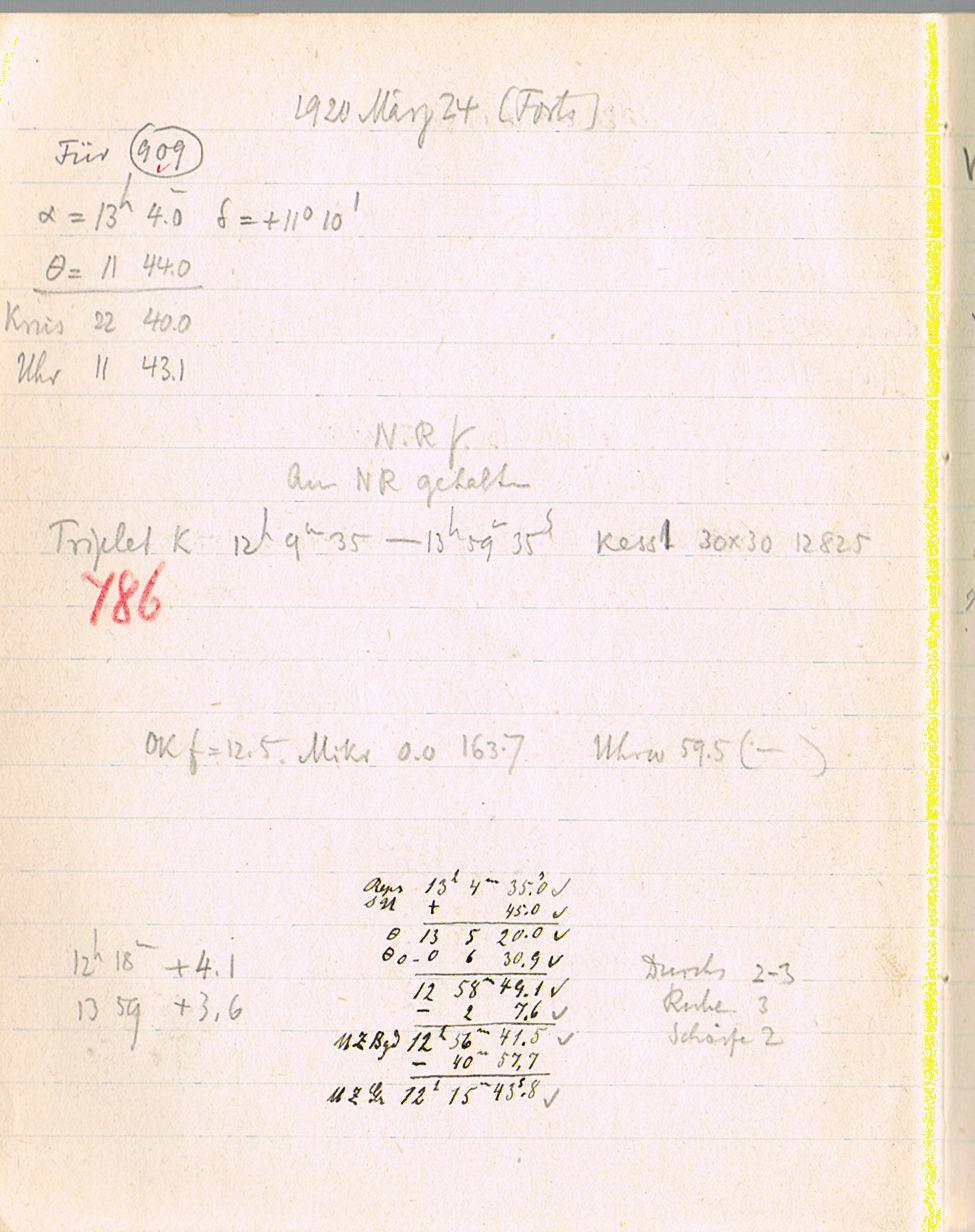 1920 März 24 (Forts)
Für 909
α = 13ʰ 4.0ᵐ δ = +11° 10'
θ = 11 44.0
Kreis 22 40.0
Uhr 11 43.1
N.R f.
Am NR gehalten
Triplet K 12ʰ 9ᵐ 35 — 13ʰ 59ᵐ 35ˢ Kass 1 30x30 12825
Y86
OK f = 12.5. Mikr 0.0 163.7 Uhrw 59.5 (— )
Reps 13ʰ 4ᵐ 35.0ˢ ✓
+ 45.0 ✓
θ 13 5 20.0 ✓
θ₀ -0 6 30.9 ✓
12 58ᵐ 49.1 ✓
- 2 7.6 ✓
MZ Bgd 12ʰ 56ᵐ 41.5 ✓
- 40ᵐ 57.7
MZ Gr 12ʰ 15ᵐ 43.8ˢ ✓
12ʰ 18ᵐ +4.1
13 59 +3,6
Durchs 2-3
Ruhe 3
Schärfe 2